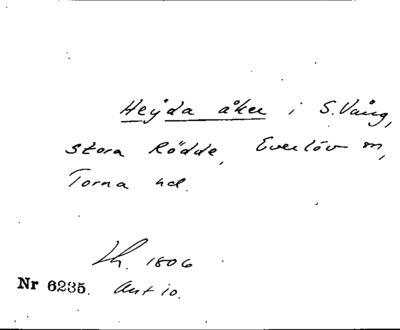 Heyda åker i S. Vång,
Stora Rödde, Everlöv sn,
Torna hd.
Lh. 1806
Nr 6235. Akt 10.